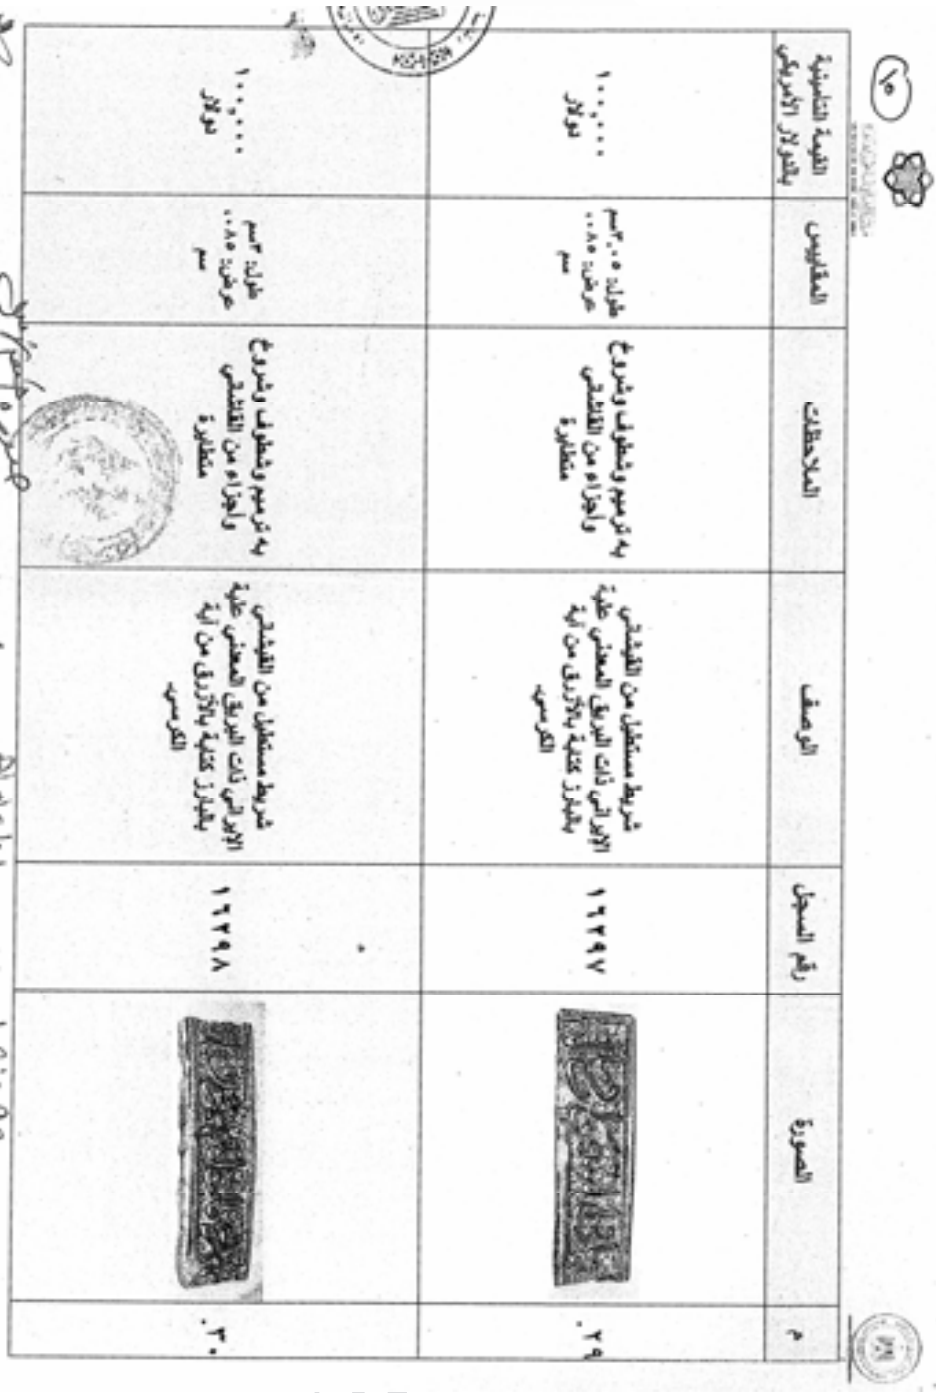 ١٥
م
الصورة
رقم السجل
الوصف
الملاحظات
المقاييس
القيمة التأمينية
بالدولار الأمريكي
٢٩.
١٦٢٩٧
شريط مستطيل من القيشاني
الإيراني ذات البريق المعدني علية
بالبارز كتابة بالأزرق من آية
الكرسي.
به ترميم وشطوف وشروخ
وأجزاء من القاشاني
متطايرة
طول: ٣,٠٥سم
عرض: ٠٠٨٥
سم
١٠٠,٠٠٠
دولار
٣٠.
١٦٢٩٨
شريط مستطيل من القيشاني
الإيراني ذات البريق المعدني علية
بالبارز كتابة بالأزرق من آية
الكرسي.
به ترميم وشطوف وشروخ
وأجزاء من القاشاني
متطايرة
طول: ٣سم
عرض: ٠٠٨٥
سم
١٠٠,٠٠٠
دولار